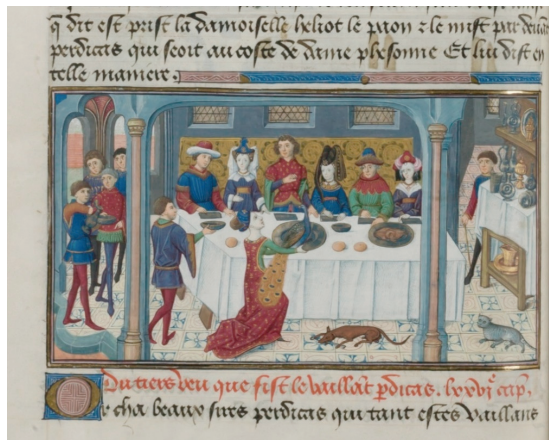 q̄ dit est prist la damoiselle heliot le paon ⁊ le mist par devāt
perdicas qui seoit au coste de dame phesonne Et lui dist en
telle maniere.
Du tiers veu que fist le vaillāt p̄dicas. lxxvıͤ cap̄.
r cha beaux sires perdicas qui tant estes vaillans